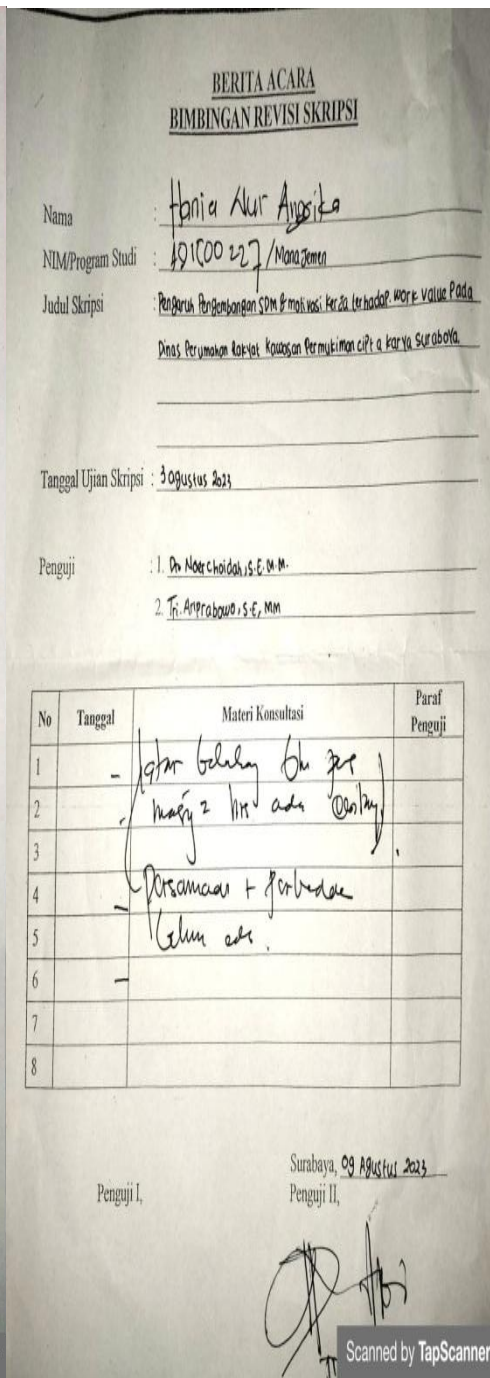 BERITA ACARA
BIMBINGAN REVISI SKRIPSI
Nama : Hania Nur
NIM/Program Studi : / Manajemen
Judul Skripsi : Pengaruh Pengembangan SDM & motivasi kerja terhadap work value Pada
Dinas Perumahan Rakyat Kawasan Permukiman cipta karya Surabaya.
Tanggal Ujian Skripsi : 3 agustus 2023
Penguji : 1. Dr. Noerchoidah, S.E. M.M.
2. Tri. Ariprabowo, S.E, MM
No Tanggal Materi Konsultasi Paraf Penguji
1 - latar belakang
2 ada
3
4 - persamaan +
5 belum ada.
6 -
7
8
Surabaya, 09 Agustus 2023
Penguji I, Penguji II,
Scanned by TapScanner